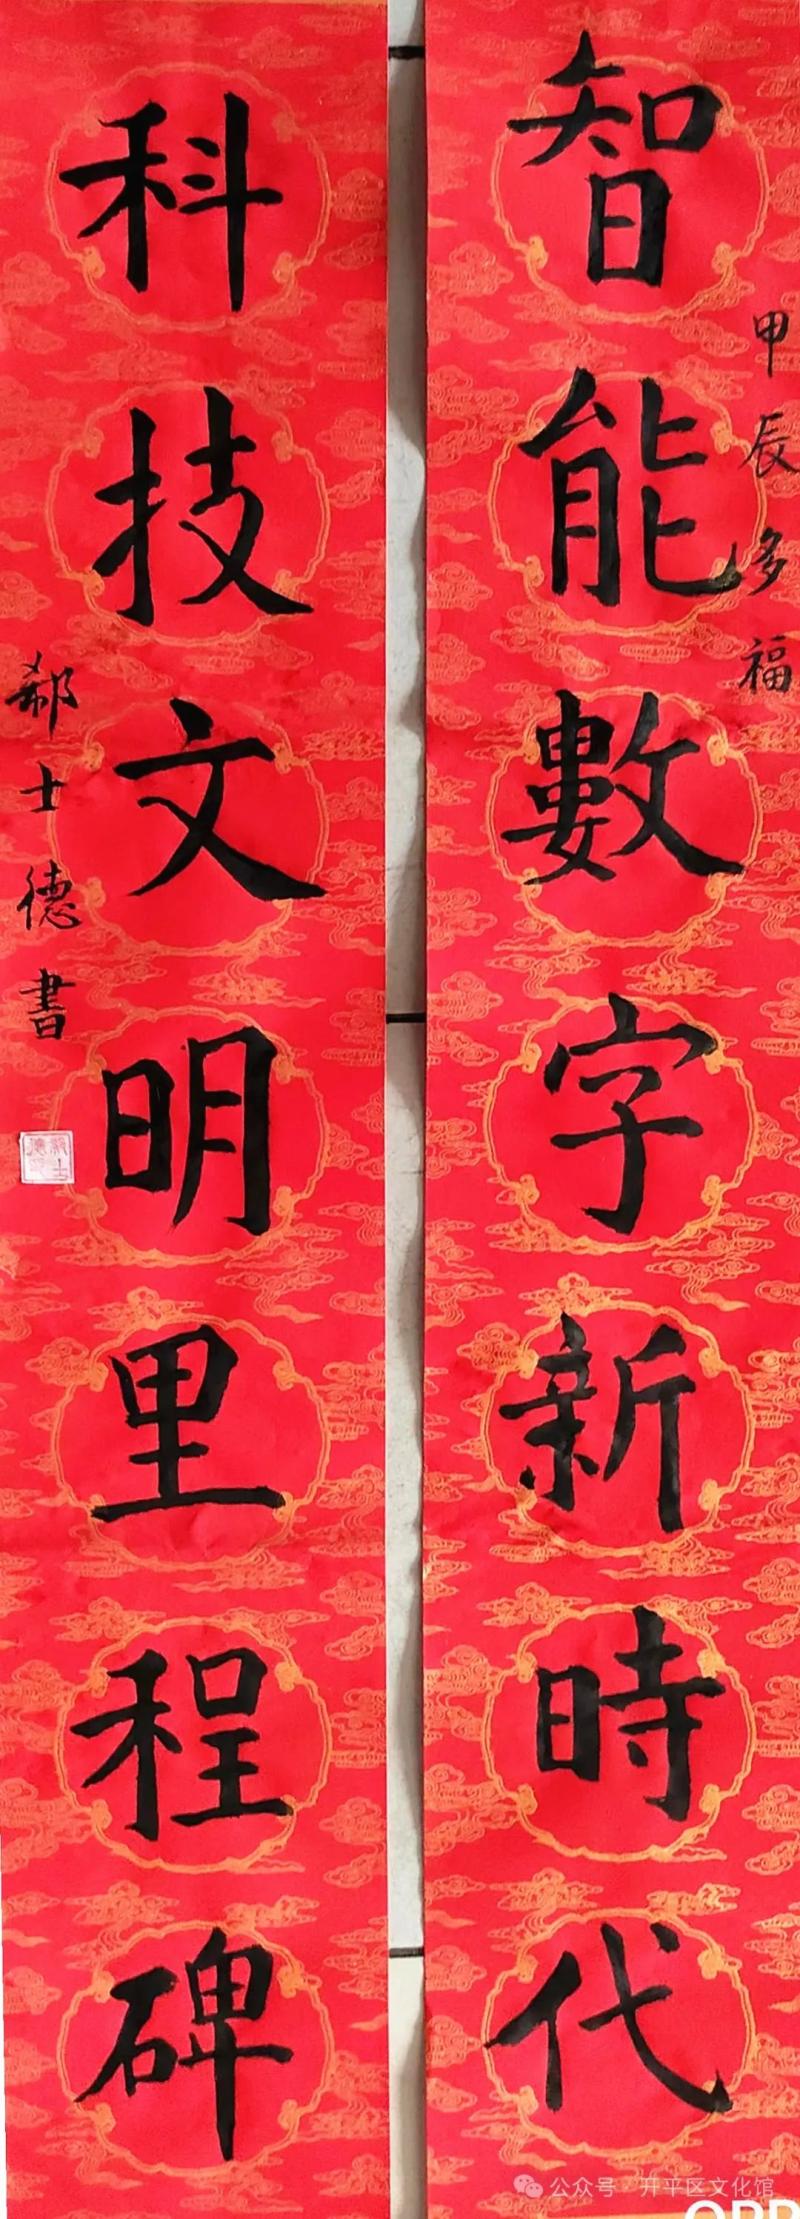 智能數字新時代
甲辰多福
科技文明里程碑
郗士德書
公众号 · 开平区文化馆